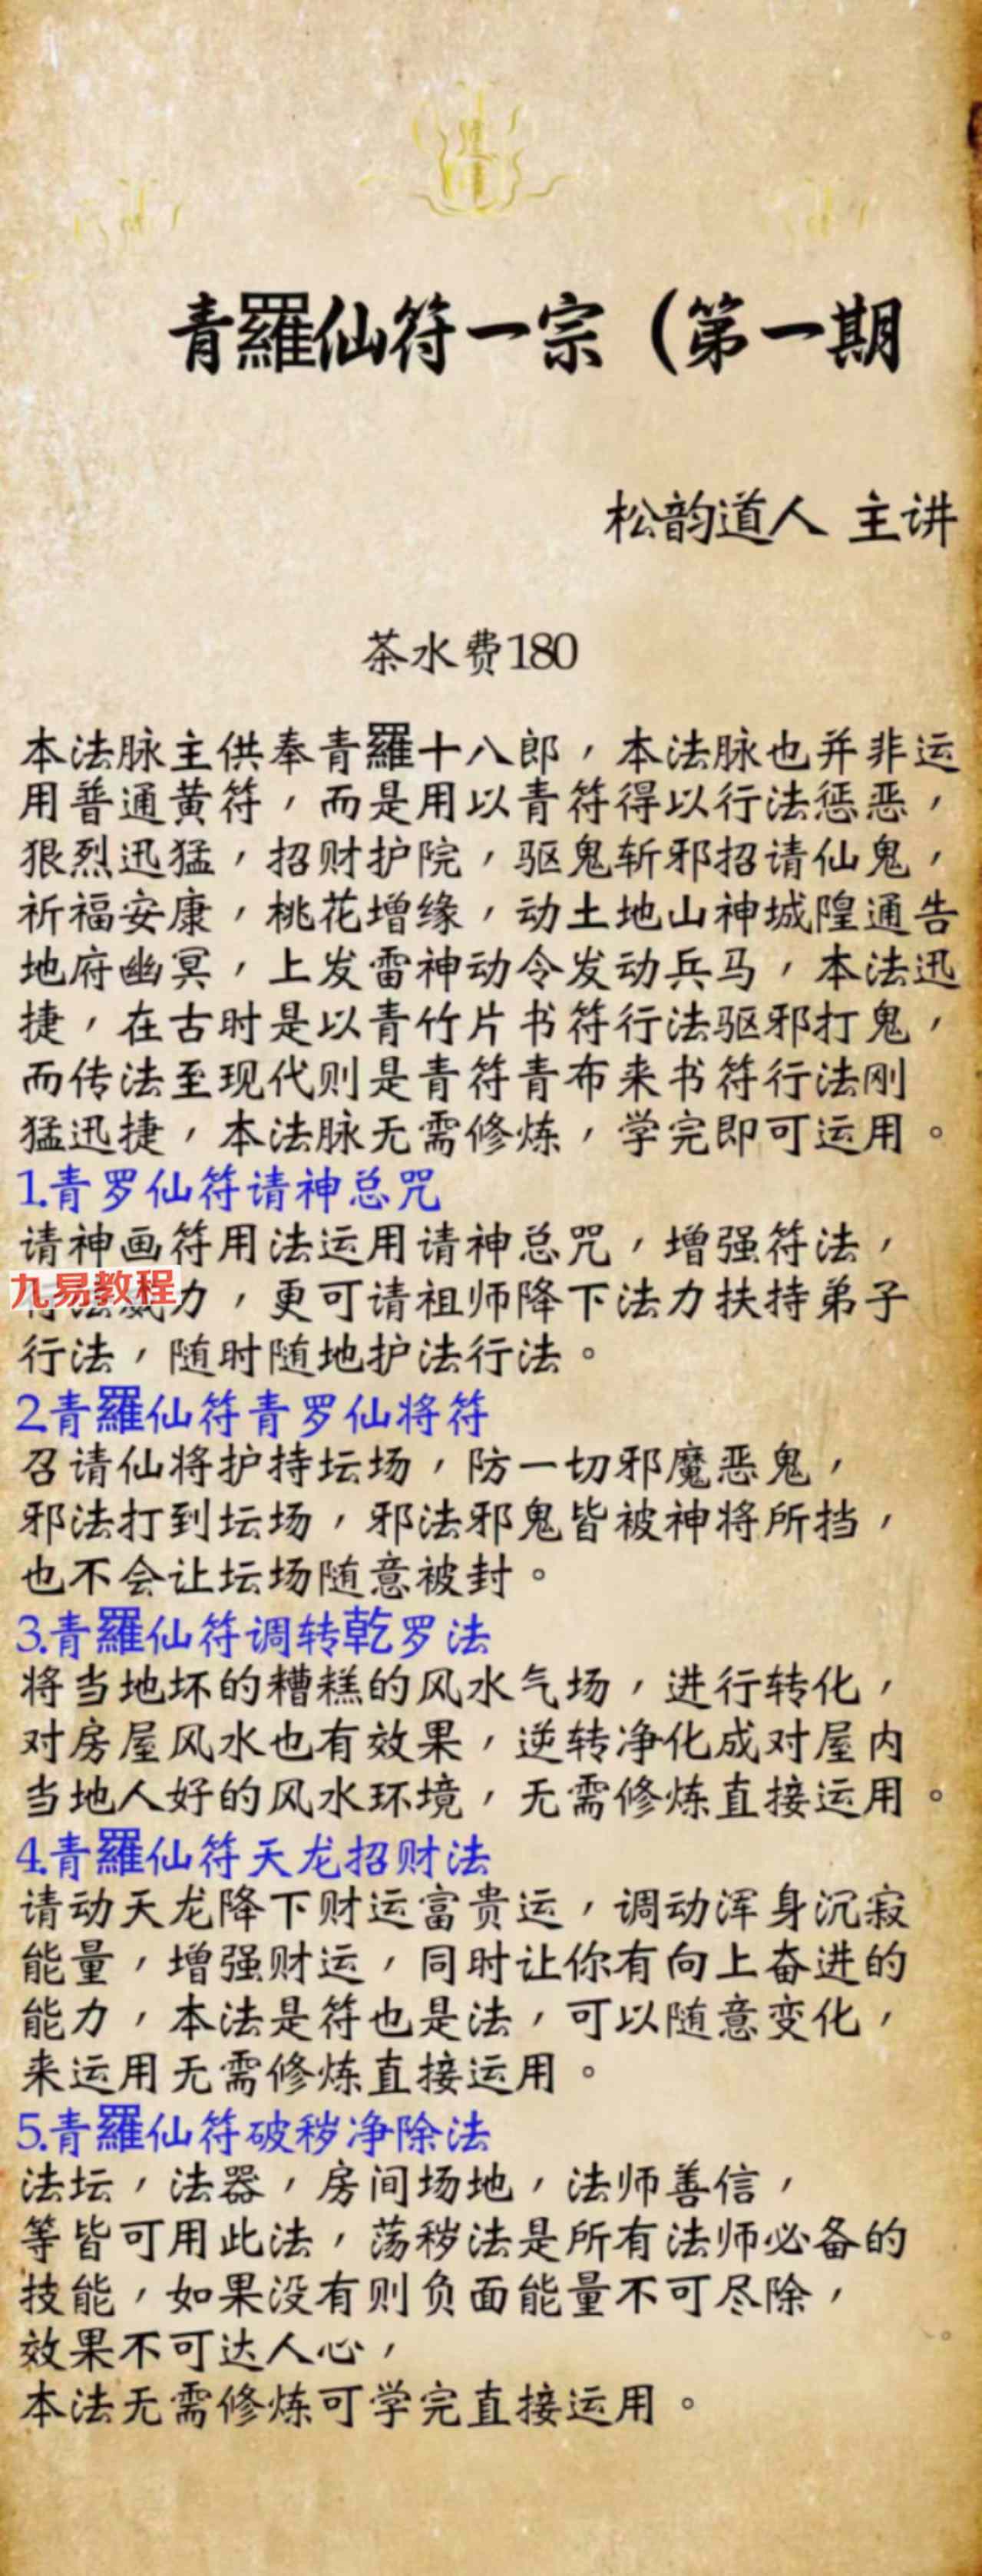 青羅仙符一宗（第一期
松韵道人 主讲
茶水费180
本法脉主供奉青羅十八郎，本法脉也并非运
用普通黄符，而是用以青符得以行法惩恶，
狠烈迅猛，招财护院，驱鬼斩邪招请仙鬼，
祈福安康，桃花增缘，动土地山神城隍通告
地府幽冥，上发雷神动令发动兵马，本法迅
捷，在古时是以青竹片书符行法驱邪打鬼，
而传法至现代则是青符青布来书符行法刚
猛迅捷，本法脉无需修炼，学完即可运用。
1.青罗仙符请神总咒
请神画符用法运用请神总咒，增强符法，
九易教程
力，更可请祖师降下法力扶持弟子
行法，随时随地护法行法。
2.青羅仙符青罗仙将符
召请仙将护持坛场，防一切邪魔恶鬼，
邪法打到坛场，邪法邪鬼皆被神将所挡，
也不会让坛场随意被封。
3.青羅仙符调转乾罗法
将当地坏的糟糕的风水气场，进行转化，
对房屋风水也有效果，逆转净化成对屋内
当地人好的风水环境，无需修炼直接运用。
4.青羅仙符天龙招财法
请动天龙降下财运富贵运，调动浑身沉寂
能量，增强财运，同时让你有向上奋进的
能力，本法是符也是法，可以随意变化，
来运用无需修炼直接运用。
5.青羅仙符破秽净除法
法坛，法器，房间场地，法师善信，
等皆可用此法，荡秽法是所有法师必备的
技能，如果没有则负面能量不可尽除，
效果不可达人心，
本法无需修炼可学完直接运用。